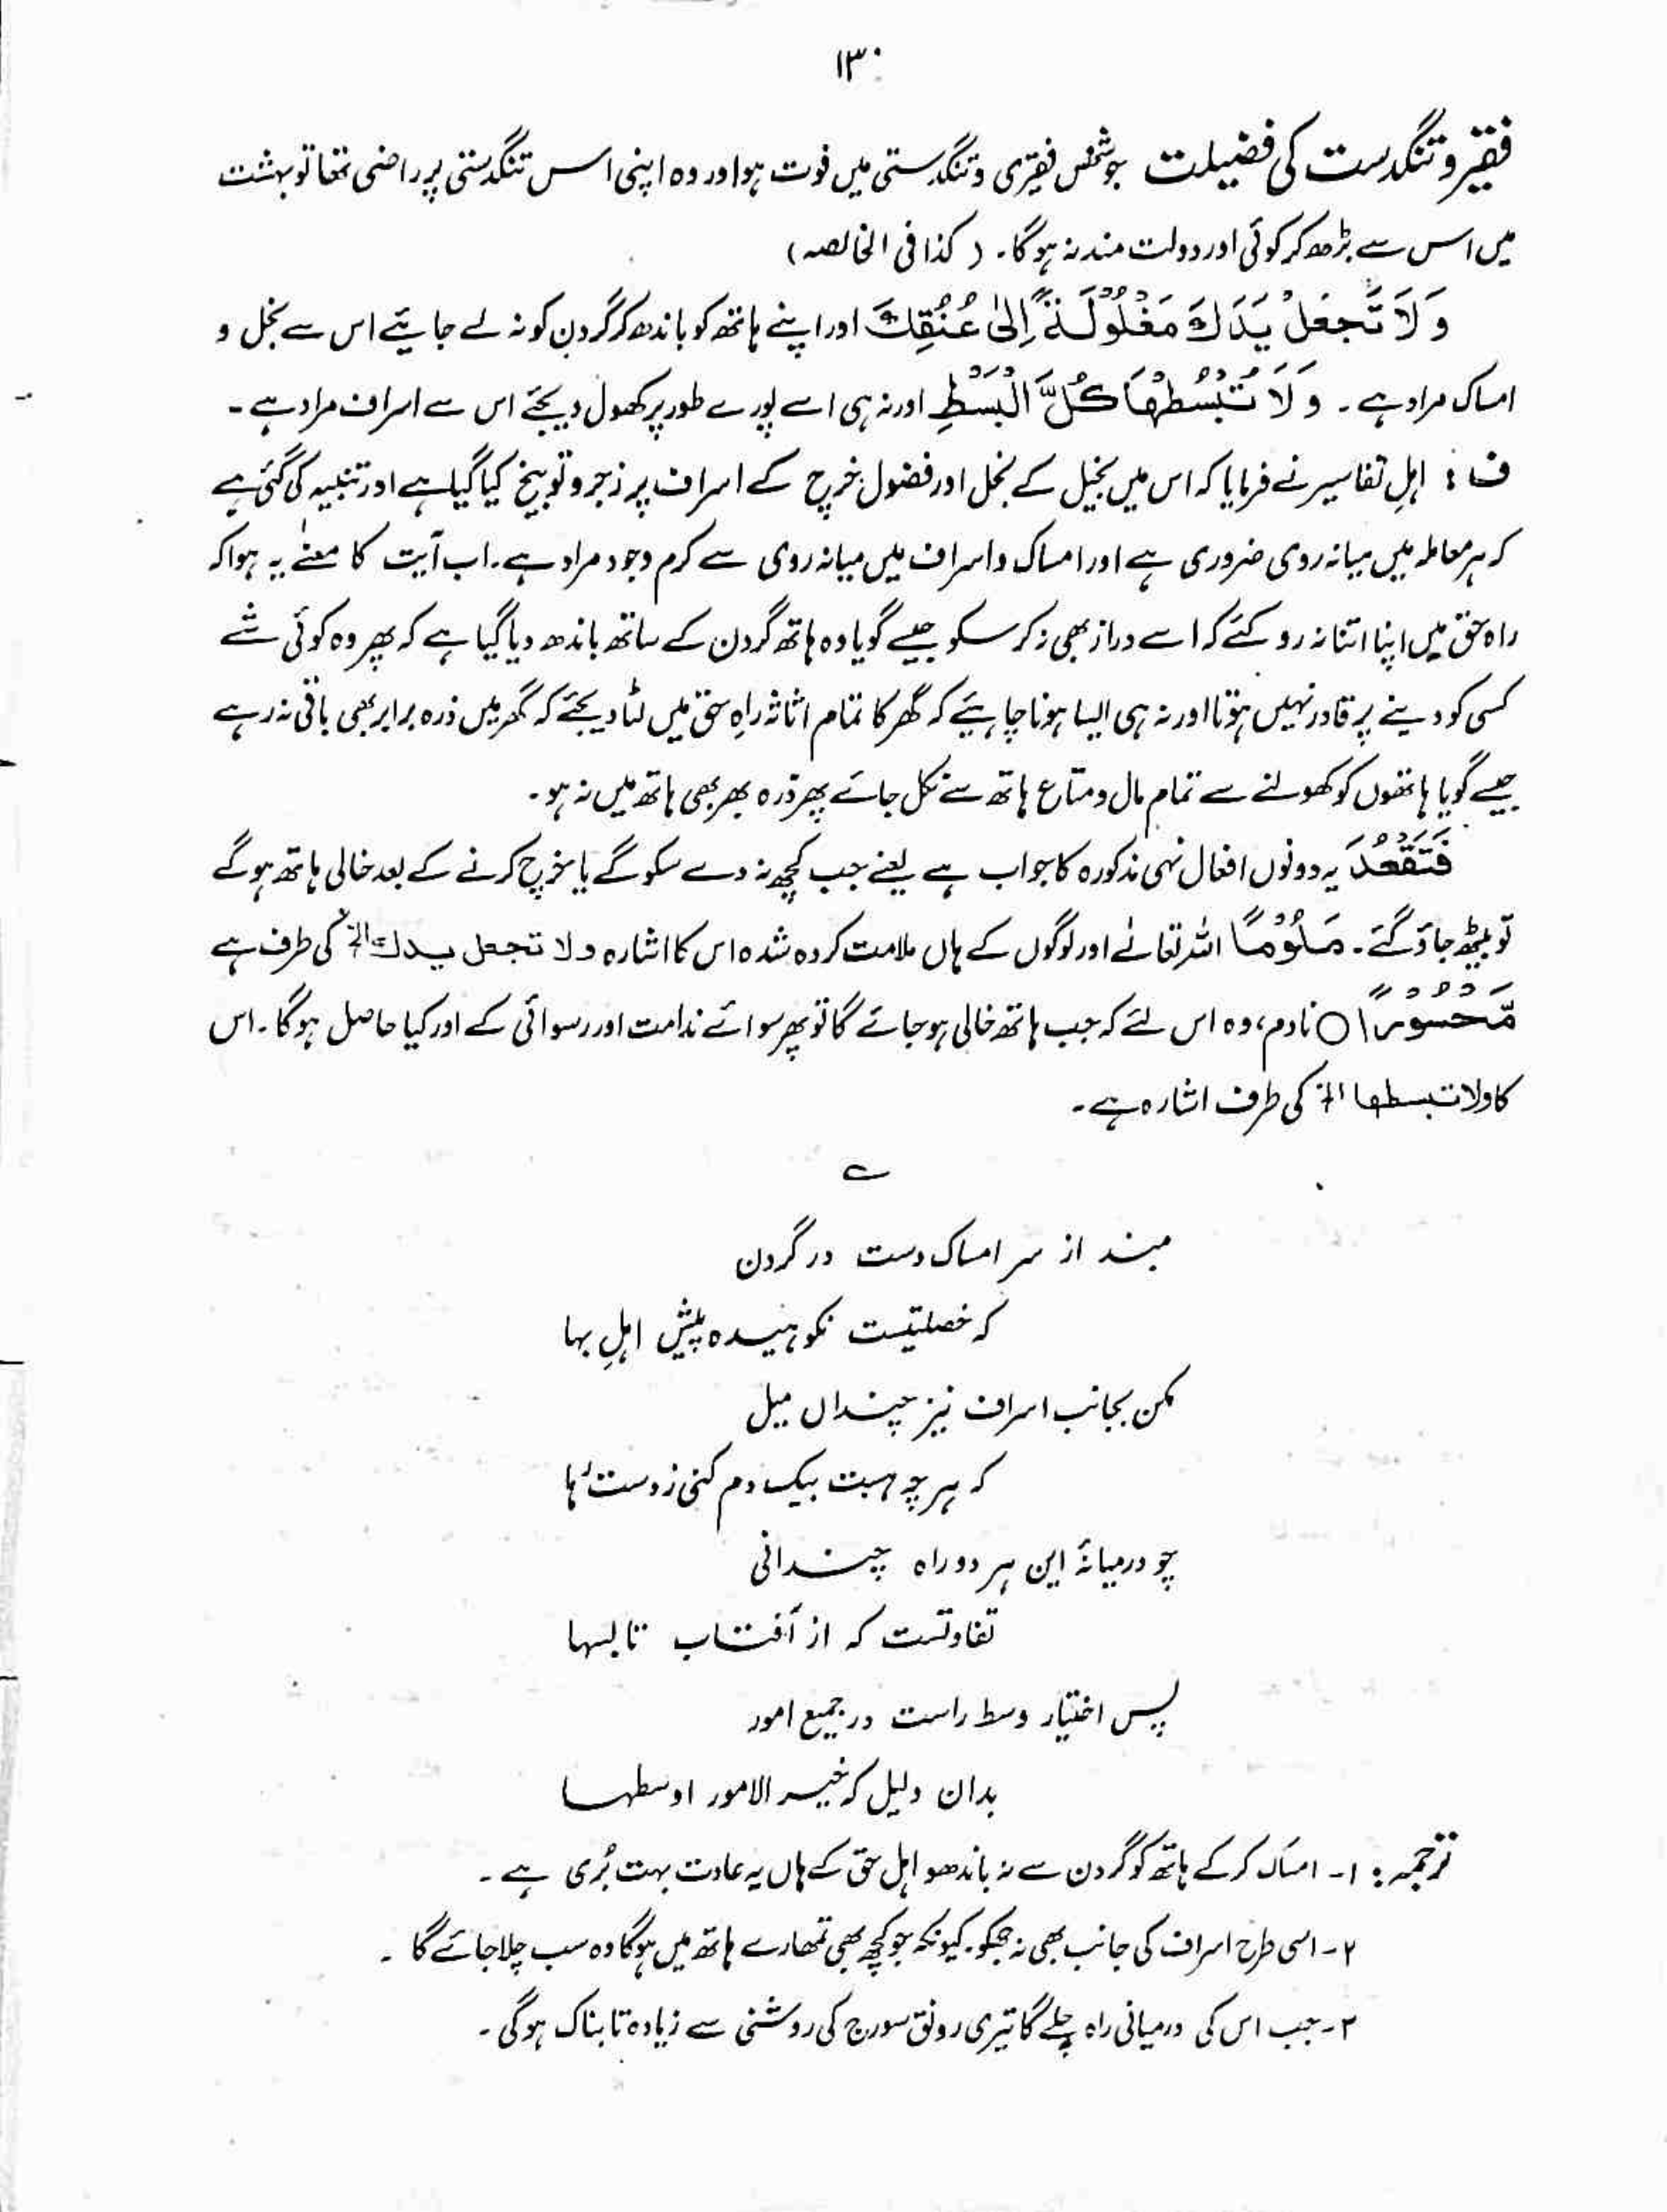 ۱۳۰
فقیر و تنگدست کی فضیلت جو شخص فقیری و تنگدستی میں فوت ہوا اور وہ اپنی اس تنگدستی پر راضی تھا تو بہشت
میں اس سے بڑھ کر کوئی اور دولت مند نہ ہوگا۔ (کذا فی الخالصہ)
وَلَا تَجْعَلْ يَدَكَ مَغْلُوْلَةً اِلٰى عُنُقِكَ اور اپنے ہاتھ کو باندھ کر گردن کو نہ لے جائیے اس سے بخل و
امساک مراد ہے۔ وَلَا تَبْسُطْهَا كُلَّ الْبَسْطِ اور نہ ہی اسے پورے طور پر کھول دیجئے اس سے اسراف مراد ہے۔
ف : اہلِ تفاسیر نے فرمایا کہ اس میں بخیل کے بخل اور فضول خرچ کے اسراف پر زجر و توبیخ کیا گیا ہے اور تنبیہ کی گئی ہے
کہ ہر معاملہ میں میانہ روی ضروری ہے اور امساک و اسراف میں میانہ روی سے کرم و جود مراد ہے۔ اب آیت کا معنےٰ یہ ہوا کہ
راہ حق میں اپنا اتنا نہ روکئے کہ اسے دراز بھی نہ کر سکو جیسے گویا وہ ہاتھ گردن کے ساتھ باندھ دیا گیا ہے کہ پھر وہ کوئی شے
کسی کو دینے پر قادر نہیں ہوتا اور نہ ہی ایسا ہونا چاہئیے کہ گھر کا تمام اثاثہ راہِ حق میں لٹا دیجئے کہ گھر میں ذرہ برابر بھی باقی نہ رہے
جیسے گویا ہاتھوں کو کھولنے سے تمام مال و متاع ہاتھ سے نکل جائے پھر ذرہ بھر بھی ہاتھ میں نہ ہو۔
فَتَقْعُدَ یہ دونوں افعال نہی مذکورہ کا جواب ہے یعنے جب کچھ نہ دے سکو گے یا خرچ کرنے کے بعد خالی ہاتھ ہو گے
تو بیٹھ جاؤ گے۔ مَلُوْمًا اللہ تعالےٰ اور لوگوں کے ہاں ملامت کردہ شدہ اس کا اشارہ ولا تجعل يدك الخ کی طرف ہے
مَّحْسُوْرًا ○ نادم، وہ اس لئے کہ جب ہاتھ خالی ہو جائے گا تو پھر سوائے ندامت اور رسوائی کے اور کیا حاصل ہوگا۔ اس
کا ولا تبسطها الخ کی طرف اشارہ ہے۔
؎
مبند از سر امساک دست در گردن
کہ خصلتیست نکوہیدہ پیش اہلِ بہا
مکن بجانب اسراف نیز چنداں میل
کہ ہرچہ ہست بیک دم کنی ز دست رہا
چو درمیانۂ این ہر دو راہ چندانی
تفاوتست کہ از آفتاب تا بسہا
پس اختیار وسط راست در جمیع امور
بدان دلیل کہ خیر الامور اوسطہا
ترجمہ : ۱۔ امساک کر کے ہاتھ کو گردن سے نہ باندھو اہل حق کے ہاں یہ عادت بہت بُری ہے۔
۲۔ اسی طرح اسراف کی جانب بھی نہ جھکو۔ کیونکہ جو کچھ بھی تمھارے ہاتھ میں ہوگا وہ سب چلا جائے گا۔
۳۔ جب اس کی درمیانی راہ چلے گا تیری رونق سورج کی روشنی سے زیادہ تابناک ہوگی۔